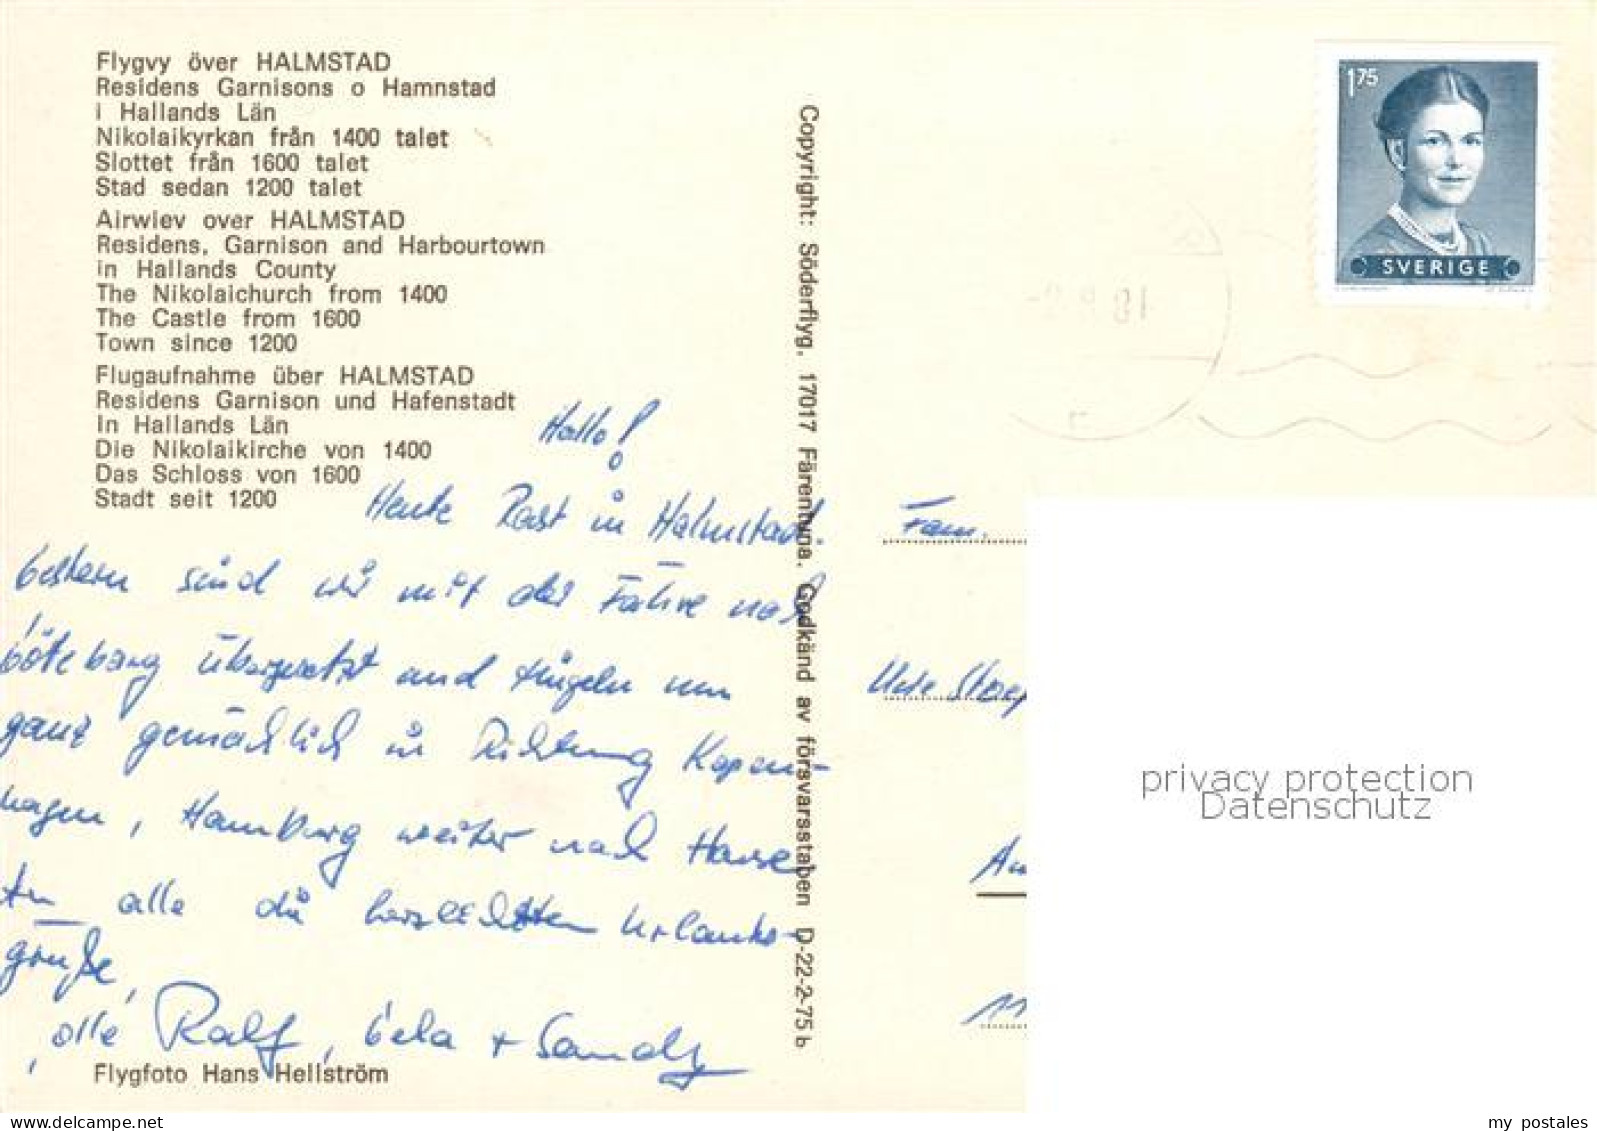 Flygvy över HALMSTAD
Residens Garnisons o Hamnstad
i Hallands Län
Nikolaikyrkan från 1400 talet
Slottet från 1600 talet
Stad sedan 1200 talet
Airwiev over HALMSTAD
Residens, Garnison and Harbourtown
in Hallands County
The Nikolaichurch from 1400
The Castle from 1600
Town since 1200
Flugaufnahme über HALMSTAD
Residens Garnison und Hafenstadt
In Hallands Län
Die Nikolaikirche von 1400
Das Schloss von 1600
Stadt seit 1200
Hallo!
Heute Rast in Halmstad.
Gestern sind wir mit der Fähre nach
Göteborg übergesetzt und nun
ganz gemächlich in Richtung Kopen-
hagen, Hamburg weiter nach Hause
An alle die herzlichsten Urlaubs-
grüße,
Ralf, Gela + Sandy
Flygfoto Hans Hellström
Copyright: Söderflyg. 17017 Färentuna. Godkänd av försvarsstaben D-22-2-75 b
175
SVERIGE
Fam.
Uwe
11
privacy protection
Datenschutz
my postales